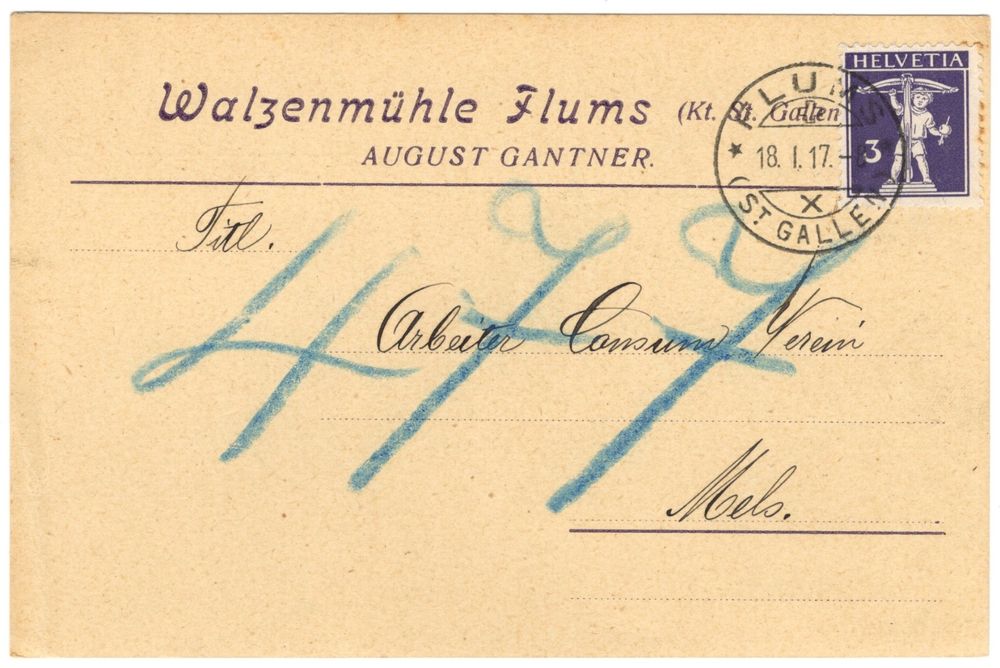 Walzenmühle Flums (Kt. St. Gallen
AUGUST GANTNER.
HELVETIA
3
FLUMS
18. I. 17.-8
X
(ST GALLEN)
Titl.
477
Arbeiter Consum Verein
Mels.